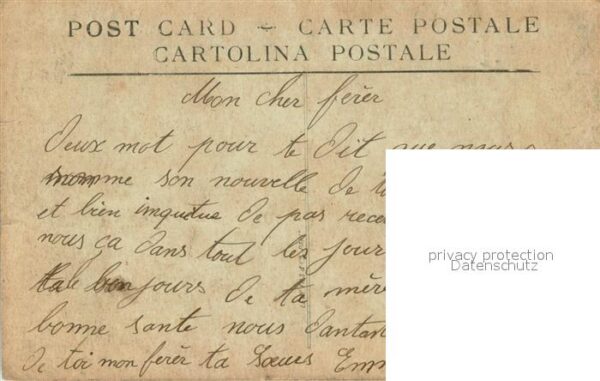 POST CARD - CARTE POSTALE
CARTOLINA POSTALE
Mon cher férèr
Deux mot pour te Dit que nous
somme son nouvelle de
et bien inquitue de pas rece
nous ça dans tout les jour
bonjours de ta mére
bonne sante nous
de toi mon férèr ta Soeurs Emm
privacy protection
Datenschutz